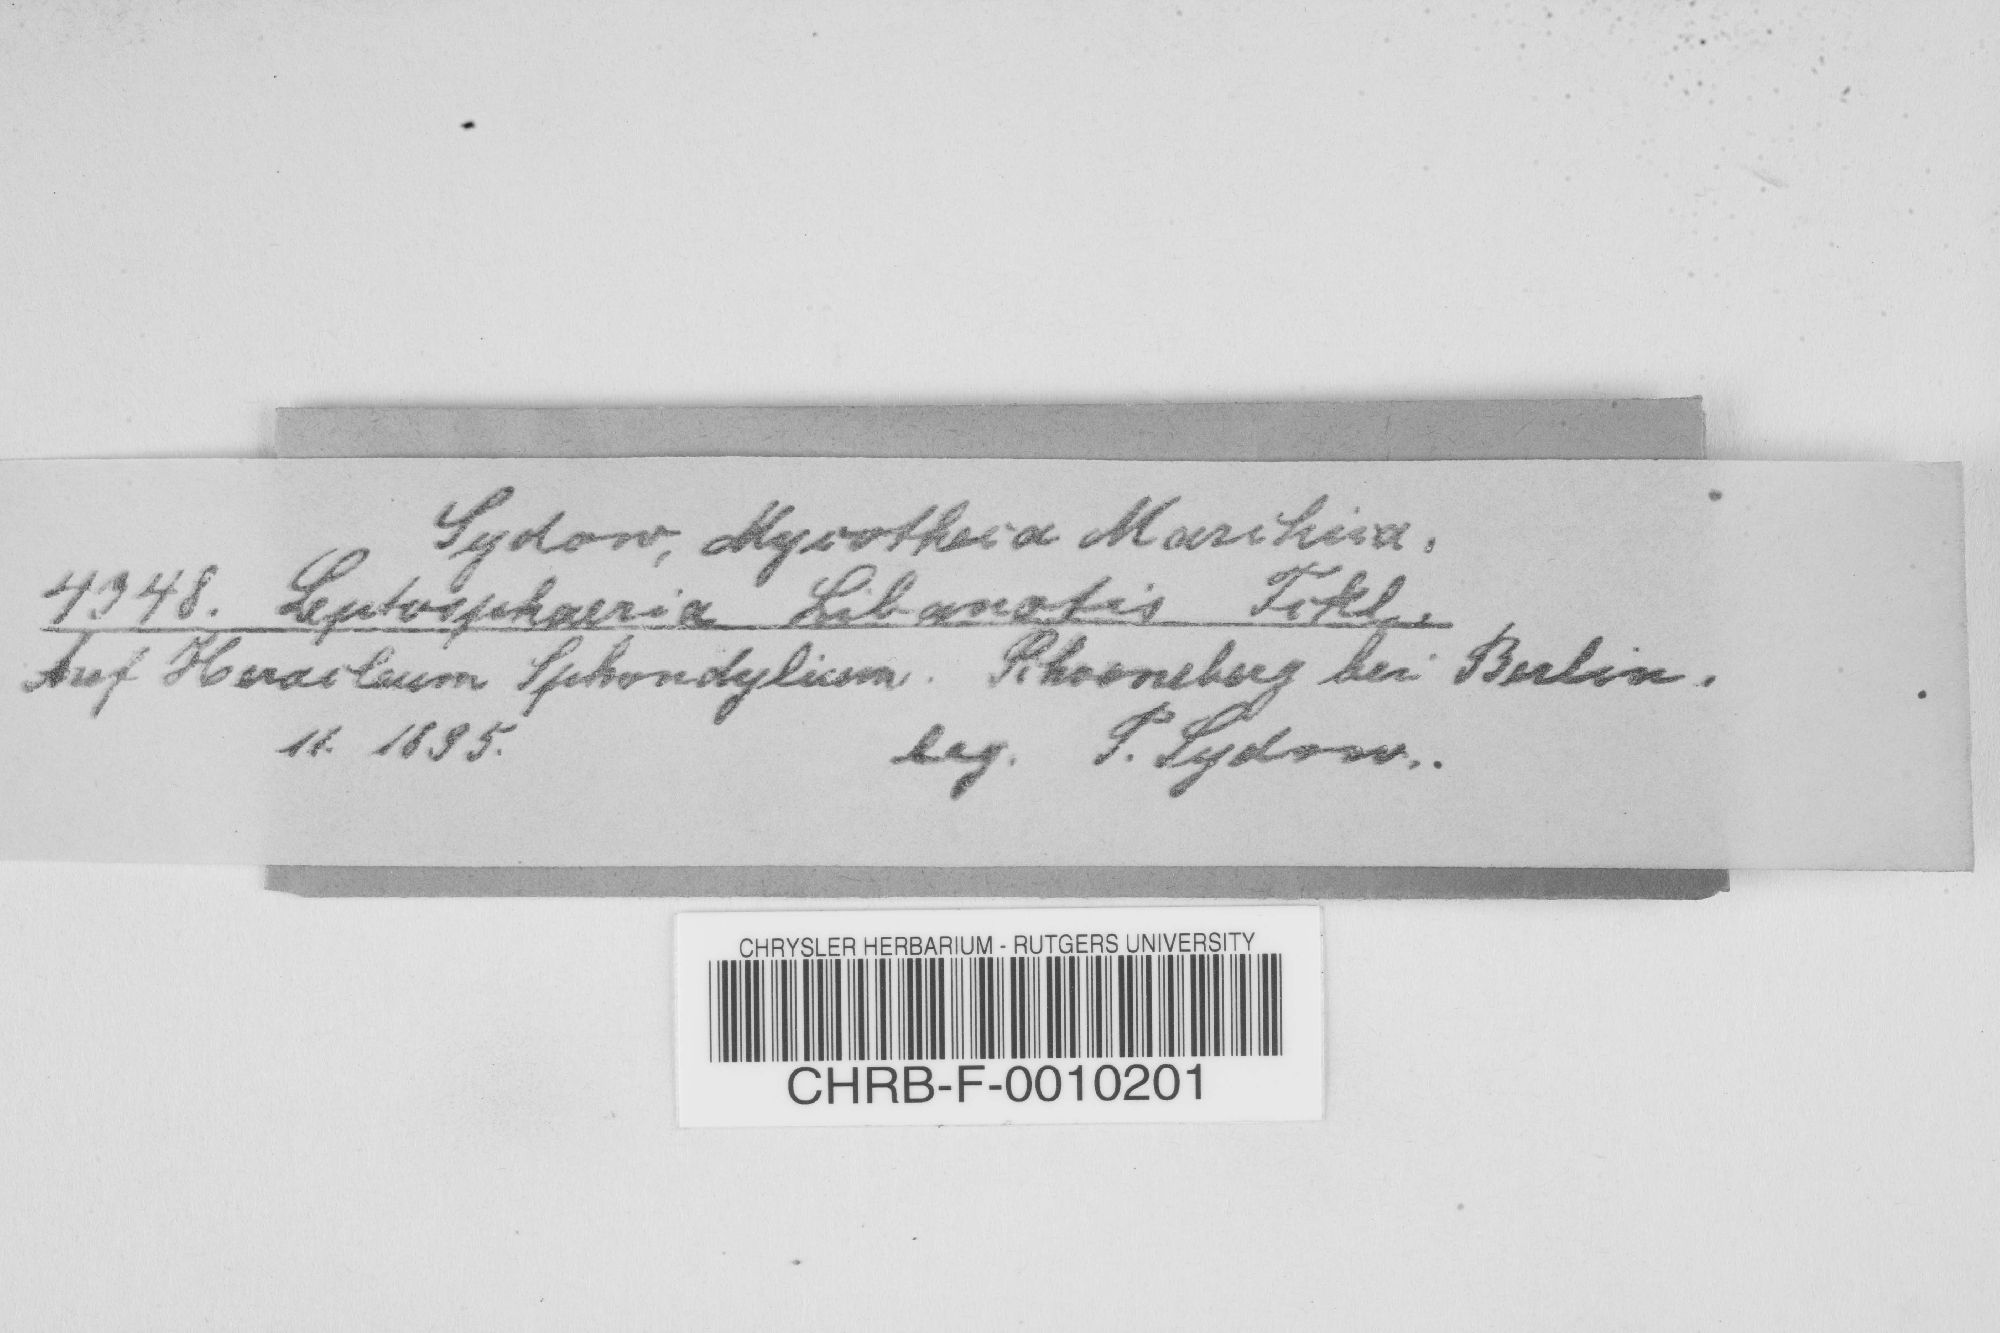 Sydow, Mycotheca Marchica.
4348. Leptosphaeria Libanotis Fckl.
Auf Heracleum Sphondylium. Schoeneberg bei Berlin.
11. 1895. leg. P. Sydow..
CHRYSLER HERBARIUM - RUTGERS UNIVERSITY
CHRB-F-0010201